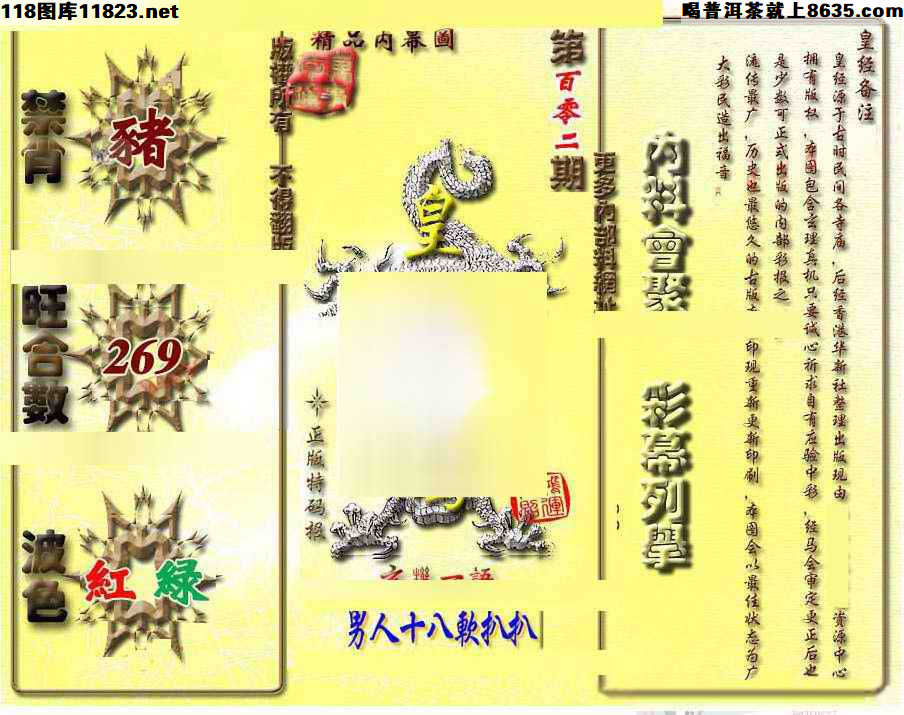 118图库11823.net
喝普洱茶就上8635.com
精品内幕圖
第百零二期
版權所有 不得翻版
禁肖
豬
旺合數
269
波色
紅 綠
皇
正版特码报
男人十八軟扒扒
更多內部料網址
內料會聚
彩幕列擧
皇经备注
皇经源于古时民间各寺庙，后经香港华新社整理出版现由
资源中心
拥有版权，本图包含玄理真机只要诚心祈求自有应验中彩，经马会审定更正后也
是少数可正式出版的内部彩报之
流传最广，历史也最悠久的古版
印现重新更新印刷，本图会以最佳状态为广
大彩民造出福音